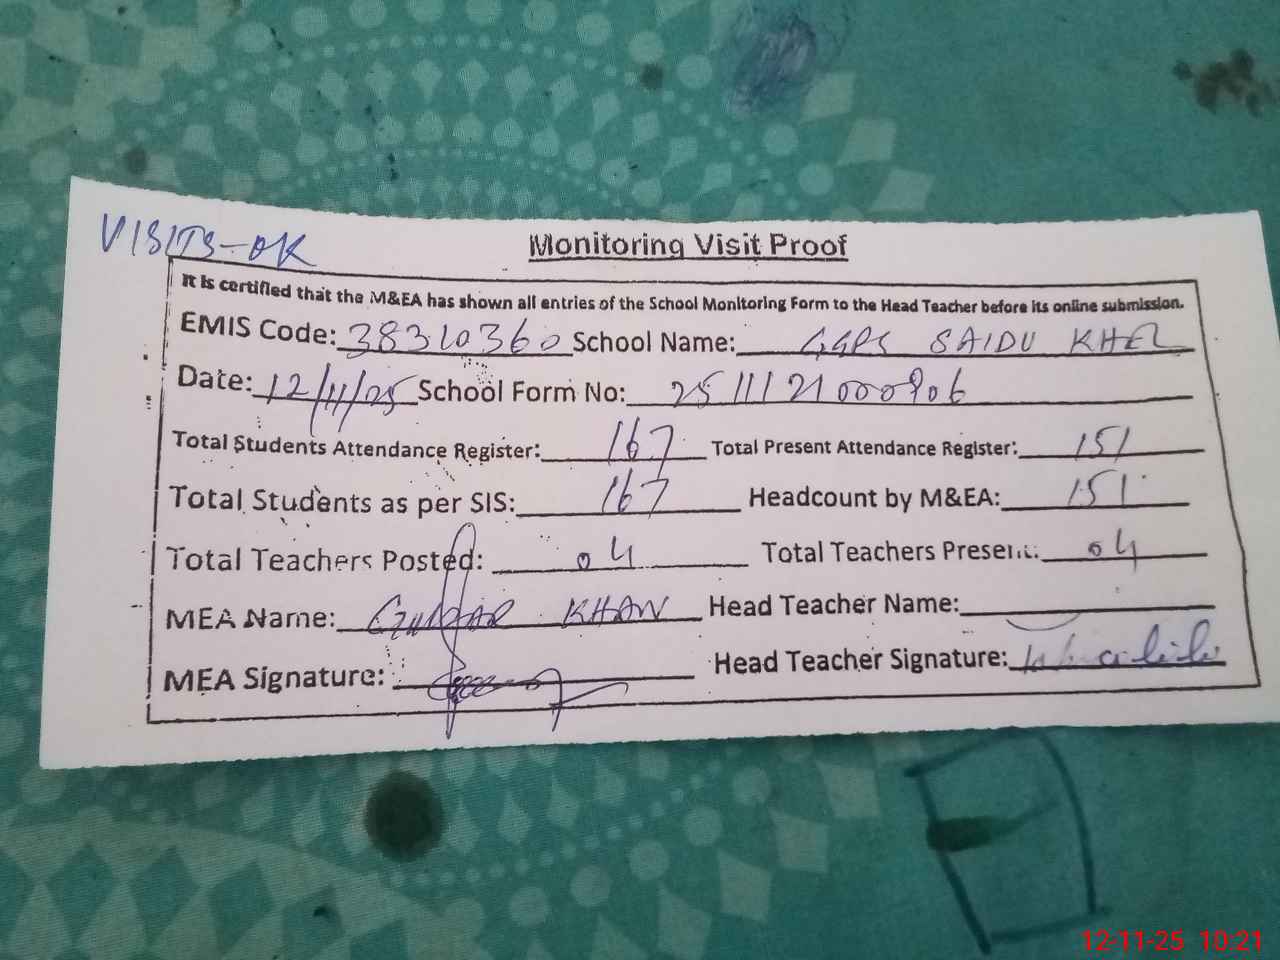 VISITS-OK
Monitoring Visit Proof
It is certified that the M&EA has shown all entries of the School Monitoring Form to the Head Teacher before its online submission.
EMIS Code: 38310360 School Name: GGPS SAIDU KHEL
Date: 12/11/25 School Form No: 25111121000906
Total Students Attendance Register: 167 Total Present Attendance Register: 151
Total Students as per SIS: 167 Headcount by M&EA: 151
Total Teachers Posted: 04 Total Teachers Present: 04
MEA Name: KHAN Head Teacher Name:
MEA Signature: Head Teacher Signature:
12-11-25 10:21